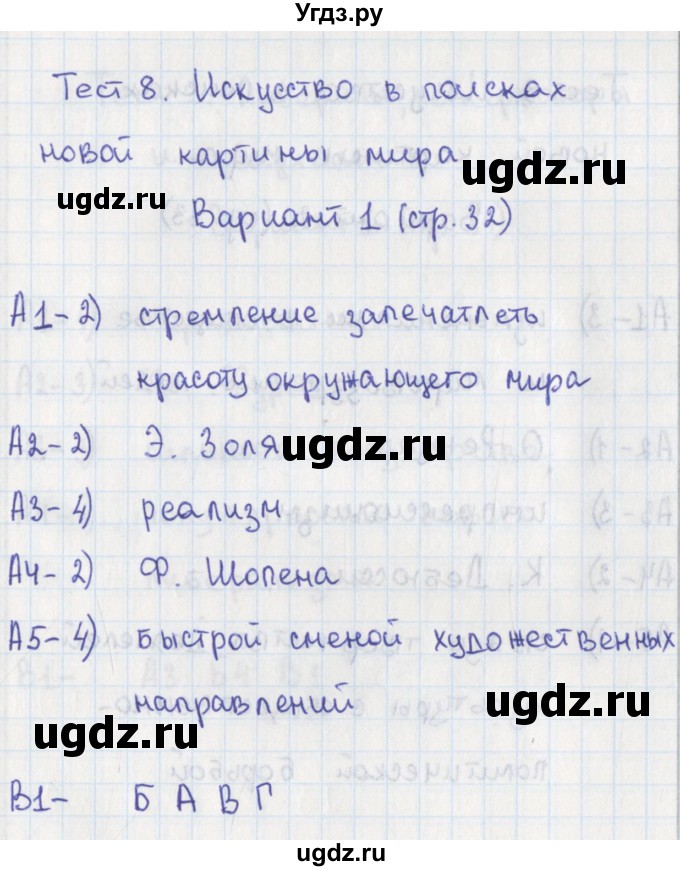 Угдз.ру
Тест 8. Искусство в поисках
новой картины мира
ugdz.ru ugdz.ru
Вариант 1 (стр. 32)
А1-2) стремление запечатлеть
красоту окружающего мира
А2-2) Э. Золя ugdz.ru
А3-4) реализм
А4-2) Ф. Шопена
А5-4) быстрой сменой художественных
направлений ugdz.ru
ugdz.ru
В1- Б А В Г
ugdz.ru